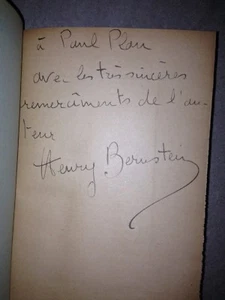 à Paul Plan
avec les très sincères
remerciments de l'au-
teur
Henry Bernstein